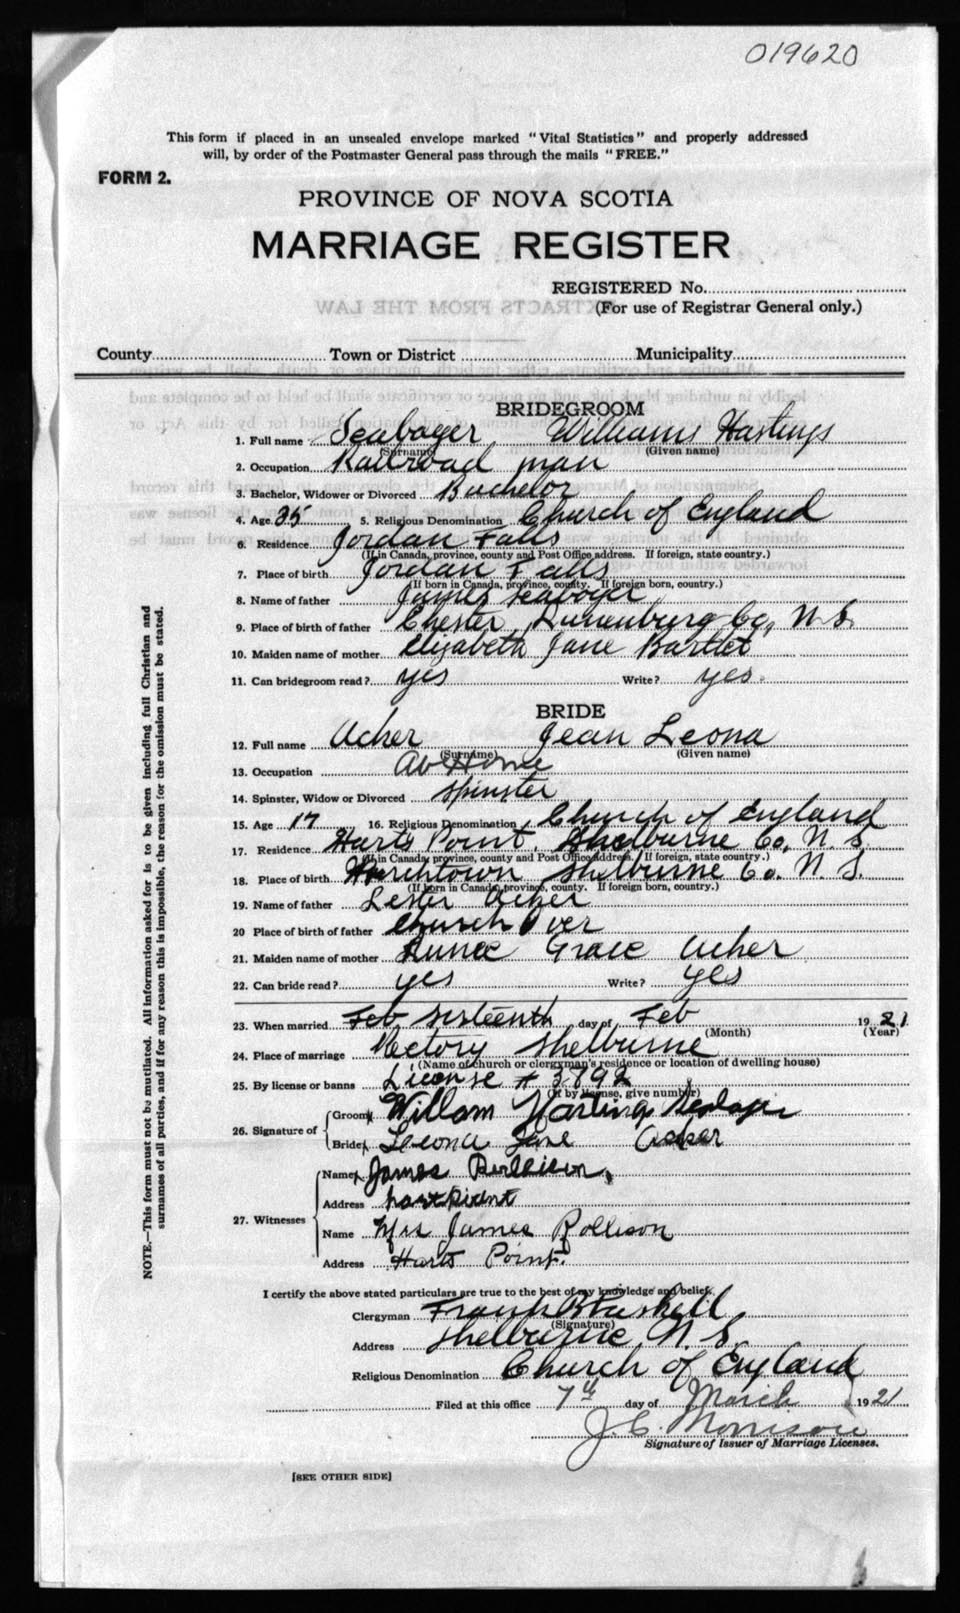 019620
This form if placed in an unsealed envelope marked "Vital Statistics" and properly addressed
will, by order of the Postmaster General pass through the mails "FREE."
FORM 2.
PROVINCE OF NOVA SCOTIA
MARRIAGE REGISTER
REGISTERED No.
(For use of Registrar General only.)
EXTRACTS FROM THE LAW
County Town or District Municipality
BRIDEGROOM
1. Full name Seaboyer Williams Hastings
(Surname) (Given name)
2. Occupation Railroad man
3. Bachelor, Widower or Divorced Bachelor
4. Age 35 5. Religious Denomination Church of England
6. Residence Jordan Falls
(If in Canada, province, county and Post Office address. If foreign, state country.)
7. Place of birth Jordan Falls
(If born in Canada, province, county. If foreign born, country.)
8. Name of father James Seaboyer
9. Place of birth of father Chester Lunenburg Co, N. S.
10. Maiden name of mother Elizabeth Jane Bartlet
11. Can bridegroom read? yes Write? yes.
BRIDE
12. Full name Acher Jean Leona
(Surname) (Given name)
13. Occupation At Home
14. Spinster, Widow or Divorced Spinster
15. Age 17 16. Religious Denomination Church of England
17. Residence Harts Point, Shelburne Co. N. S.
(If in Canada, province, county and Post Office address. If foreign, state country.)
18. Place of birth Shelburne Co. N. S.
(If born in Canada, province, county. If foreign born, country.)
19. Name of father Lester Acher
20 Place of birth of father Church Over
21. Maiden name of mother Grace Acher
22. Can bride read? yes Write? yes
23. When married Feb sixteenth day of Feb 1921
(Month) (Year)
24. Place of marriage Rectory Shelburne
(Name of church or clergyman's residence or location of dwelling house)
25. By license or banns License # 3892
(If by license, give number)
26. Signature of Groom x Willam Hastings
Bride x Leona Jane Acker
27. Witnesses Name x James Rollison
Address hart Point
Name Mrs James Rollison
Address Harts Point.
I certify the above stated particulars are true to the best of my knowledge and belief.
Clergyman Frank
(Signature)
Address Shelburne, N. S.
Religious Denomination Church of England
Filed at this office 7th day of March 1921
J. C. Morrison
Signature of Issuer of Marriage Licenses.
[SEE OTHER SIDE]
NOTE.—This form must not be mutilated. All information asked for is to be given including full Christian and
surnames of all parties, and if for any reason this is impossible, the reason for the omission must be stated.